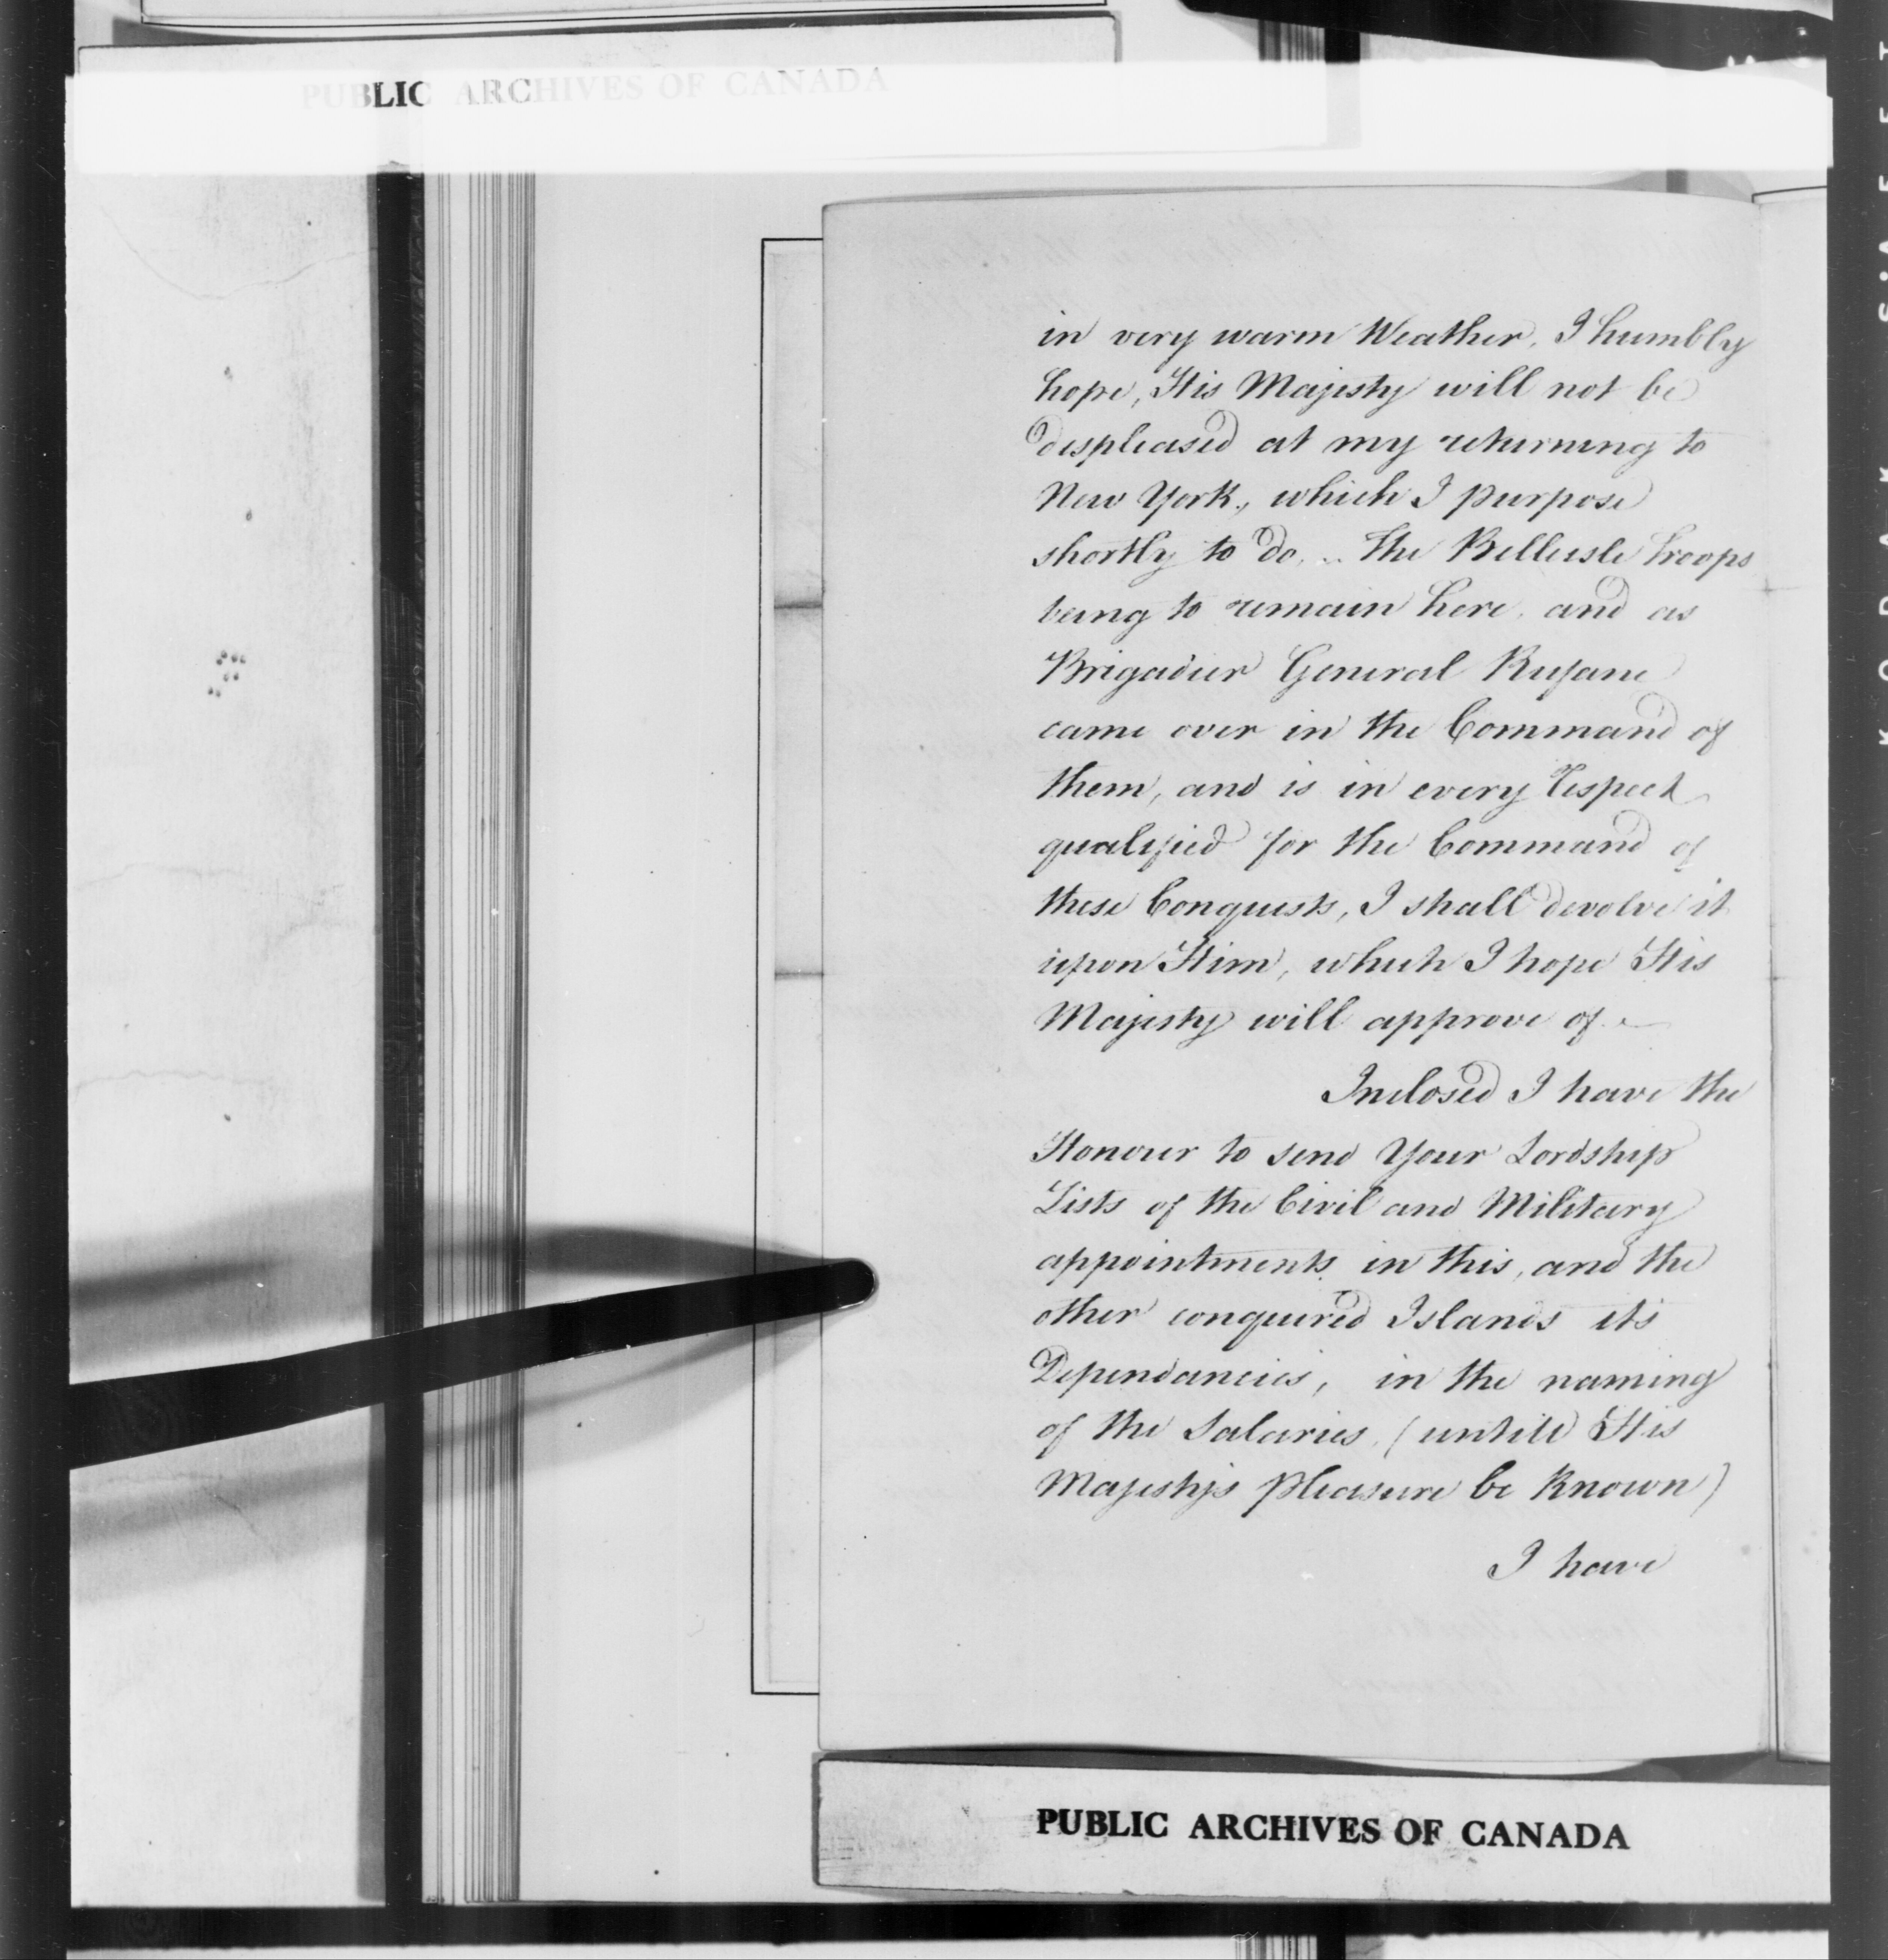 PUBLIC ARCHIVES OF CANADA
in very warm Weather, I humbly
hope, His Majesty will not be
displeased at my returning to
New York, which I purpose
shortly to do... The Belleisle troops
being to remain here, and as
Brigadier General Rufane
came over in the Command of
them, and is in every respect
qualified for the Command of
these Conquests, I shall devolve it
upon Him, which I hope His
Majesty will approve of. —
Inclosed I have the
Honour to send Your Lordship
Lists of the Civil and Military
appointments in this, and the
other conquered Islands it's
Dependancies, in the naming
of the Salaries, (untill His
Majesty's pleasure be known)
I have
PUBLIC ARCHIVES OF CANADA